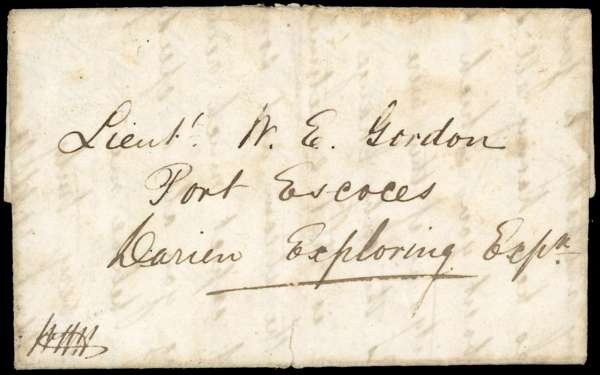 Lieut. W. E. Gordon
Port Escoces
Darien Exploring Expn